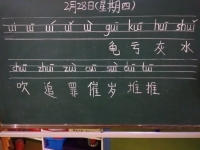 2月28日(星期四)
ui uī uí uǐ uì guī kuī huī shuǐ
龟 亏 灰 水
chuī zhuī zuì cuī suì duī tuī
吹 追 罪 催 岁 堆 推